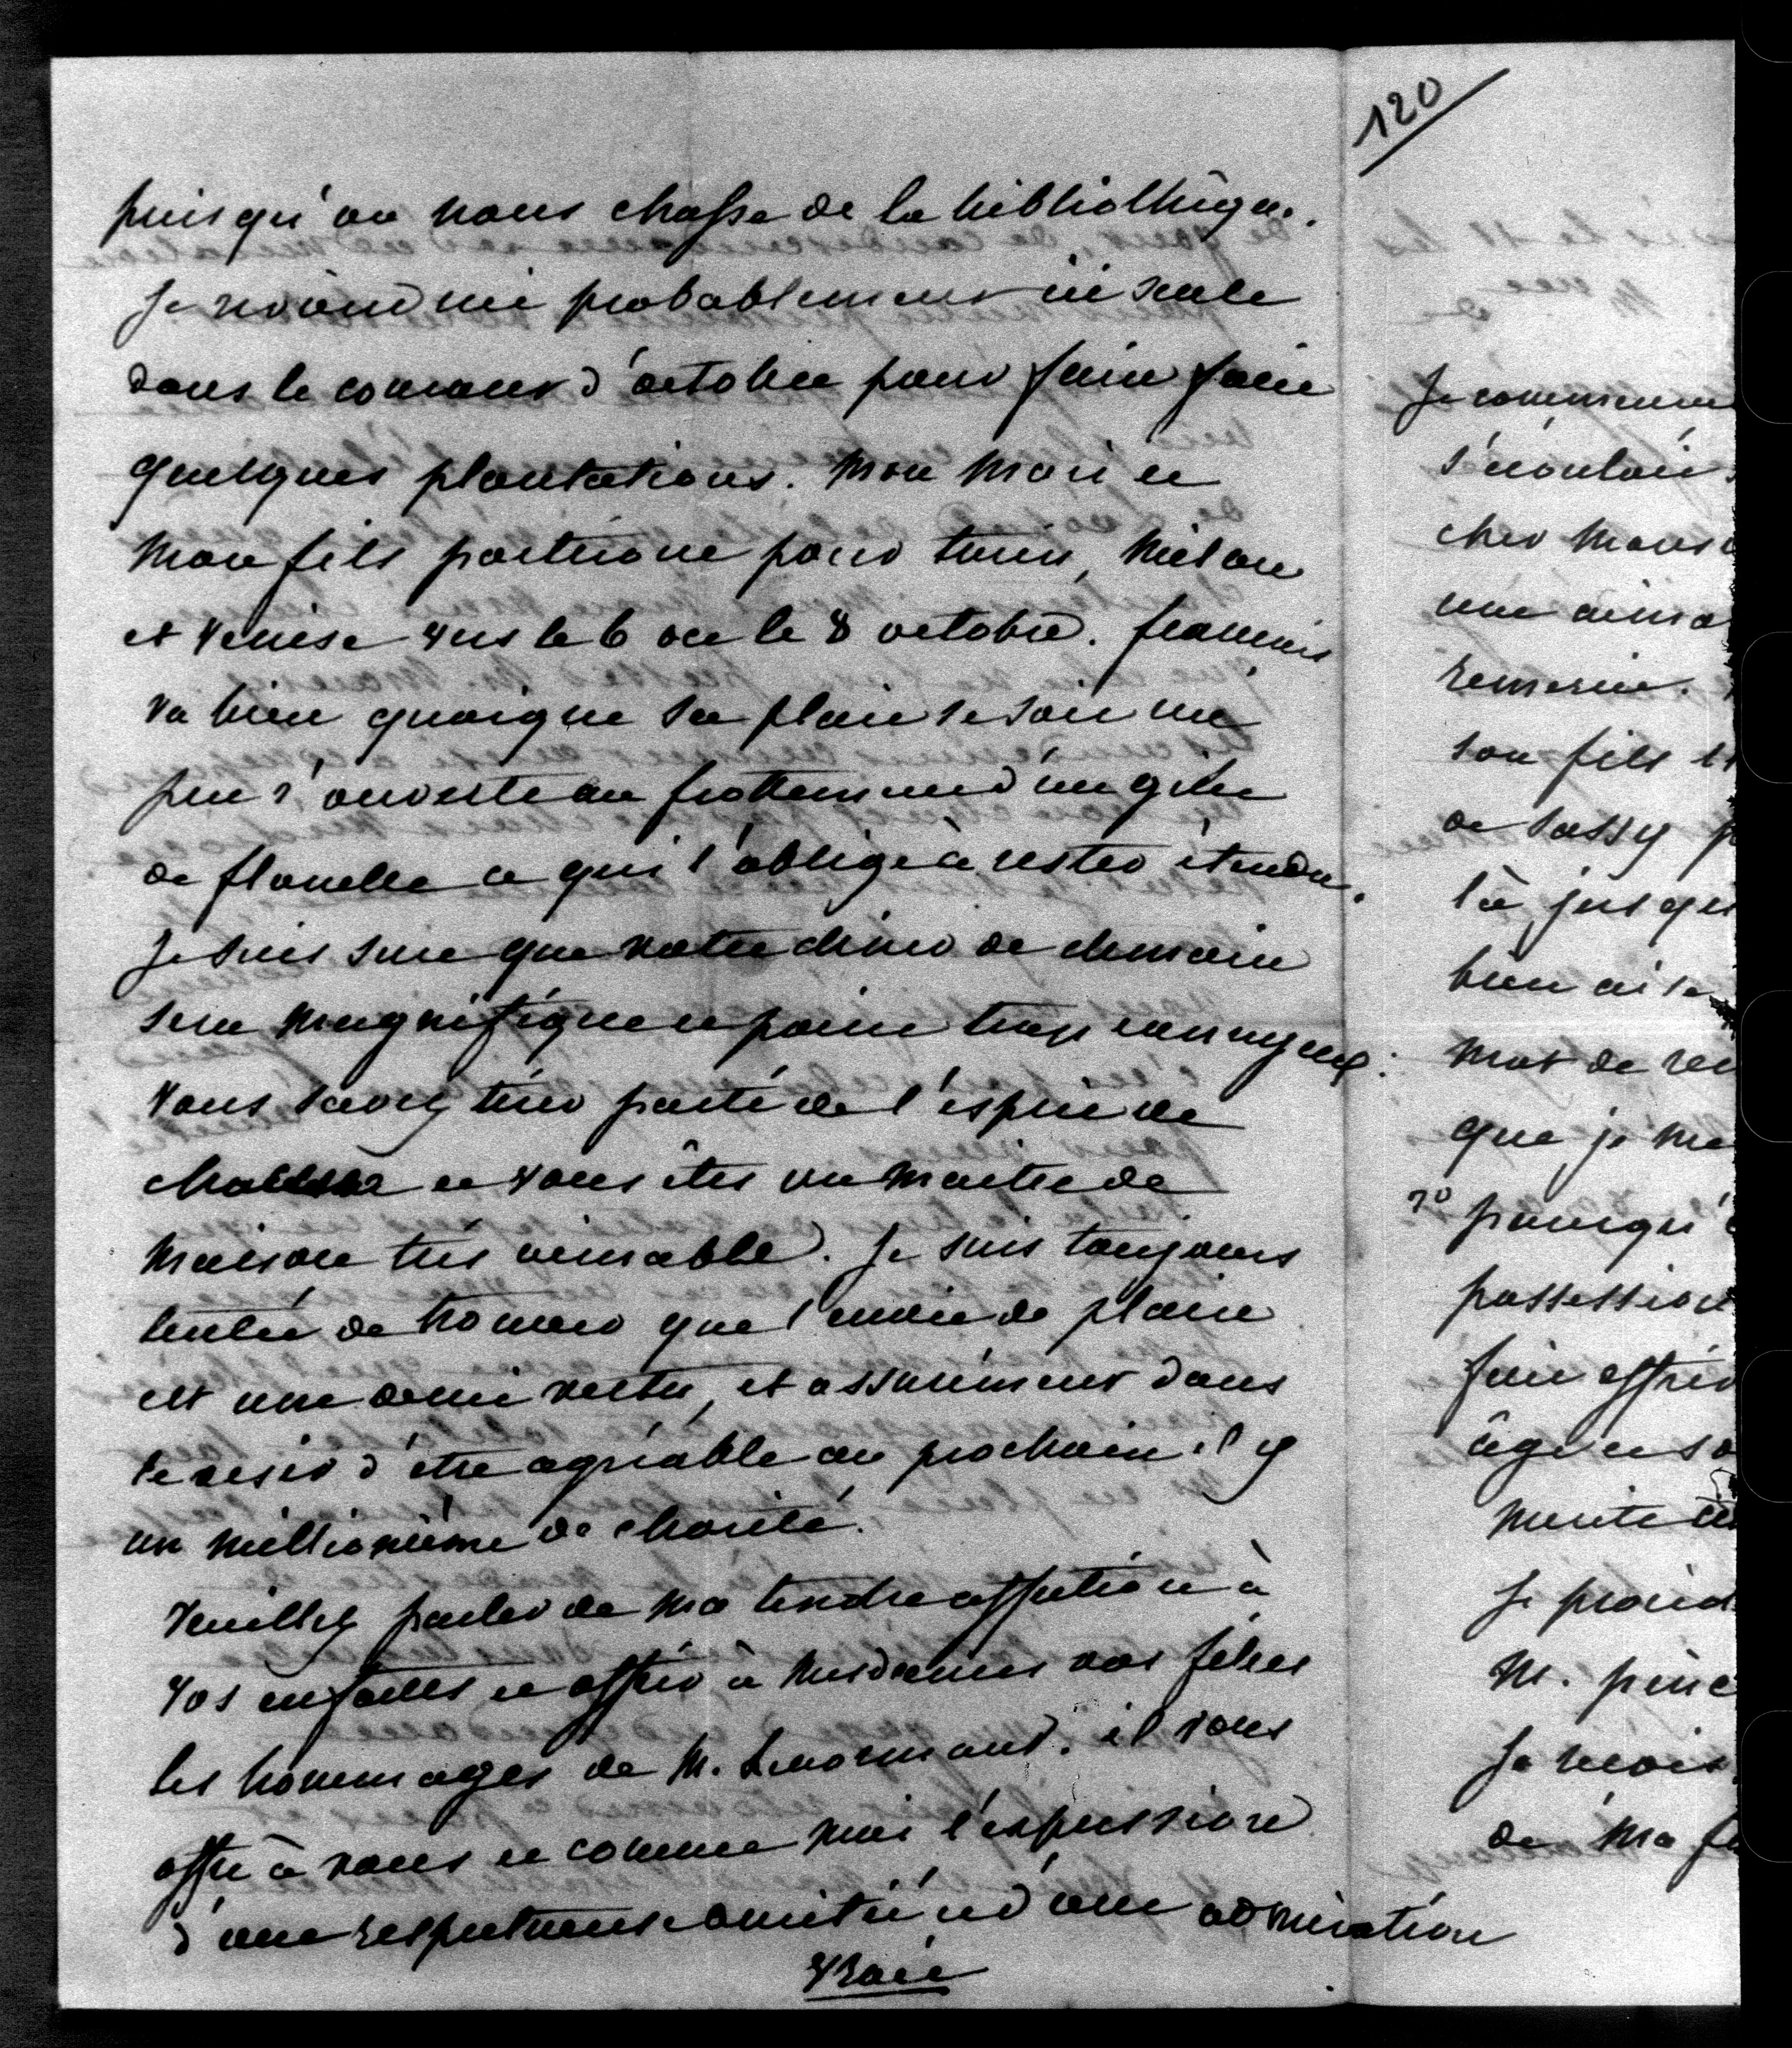 120
puisqu'on nous chasse de la bibliothèque.
Je reviendrai probablement ici seule
dans le courant d'octobre pour faire faire
quelques plantations. Mon Mari et
Mon fils partiront pour turin, Milan
et Venise vers le 6 ou le 8 octobre. françois
va bien quoique sa plaie se soit un
peu r'ouverte au frottement d'un gilet
de flanelle ce qui l'oblige à rester étendu.
Je suis sure que votre diner de demain
sera magnifique et point trop ennuyeux.
Vous savez tirer parti de l'esprit de
et vous êtes un Maitre de
Maison très aimable. Je suis toujours
tentée de trouver que l'envie de plaire
est une demi vertu, et assurément dans
le desir d'être agréable au prochain il y
un millionième de charité.
Veuillez parler de Ma tendre affection à
vos enfants et offrir à Mesdames vos filles
les hommages de M. Lenormant. il vous
offre à vous et comme Moi l'expression
d'une respectueuse amitié et d'une admiration
vraie
Je commen
s'écoulai
cher Mons
une aima
remercie.
son fils et
de Sassy p
là jusqu
bien aise
Mot de re
que je me
pourqu'
possession
faire offrir
âge et so
Mérite
Je prend
M. pinc
Je reçois
de Ma f